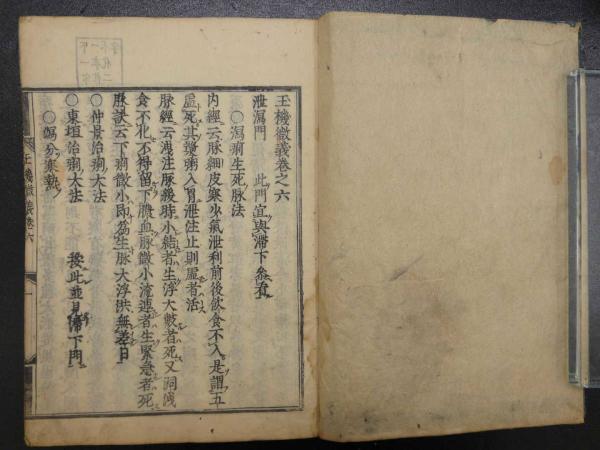 玉機微義卷之六
泄瀉門　此門宜與滯下叅看
○瀉痢生死脉法
內經云脉細皮寒少氣泄利前後飲食不入是謂五
虛死其漿粥入胃泄注止則虛者活
脉經云洩注脉緩時小結者生浮大數者死又洞洩
食不化不得留下膿血脉微小流連者生緊急者死
脉訣云下痢微小却為生脉大浮洪無差日
○仲景治痢大法
○東垣治痢大法　按此並見滯下門
○瀉分寒熱
玉機微義卷六　一